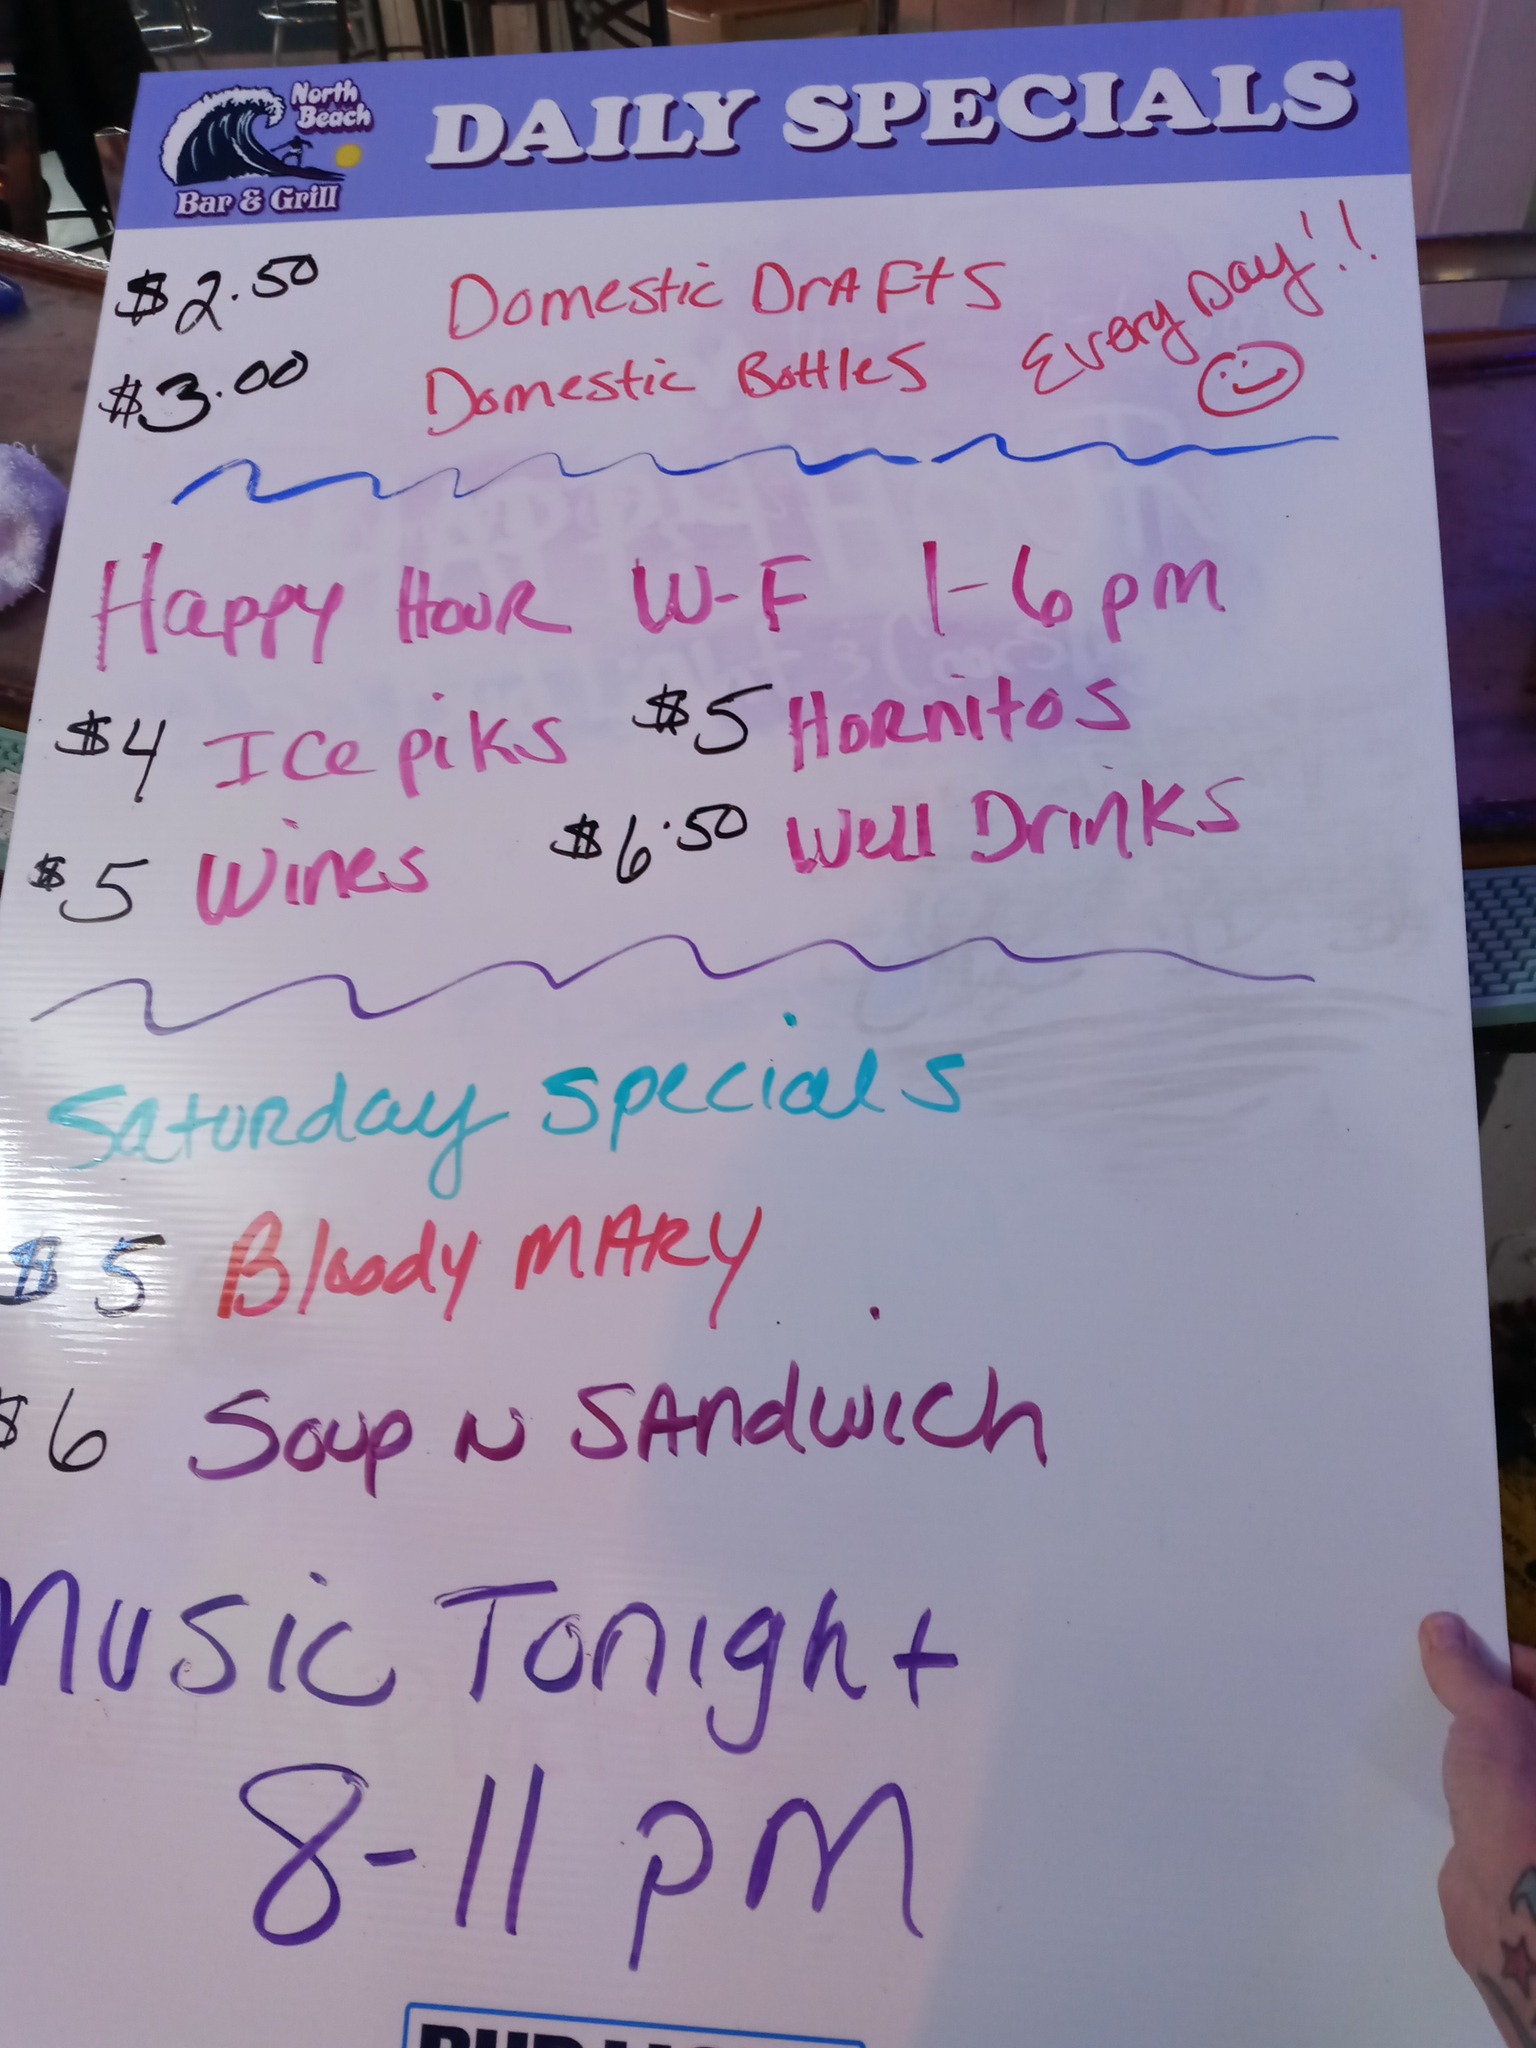 North
Beach
Bar & Grill
DAILY SPECIALS
$2.50 Domestic Drafts
$3.00 Domestic Bottles
Every Day!!
Happy Hour W-F 1-6pm
$4 Ice piks $5 Hornitos
$5 Wines $6.50 Well Drinks
Saturday Specials
$5 Bloody MARY
$6 Soup N SANdwich
Music Tonight
8-11 pm